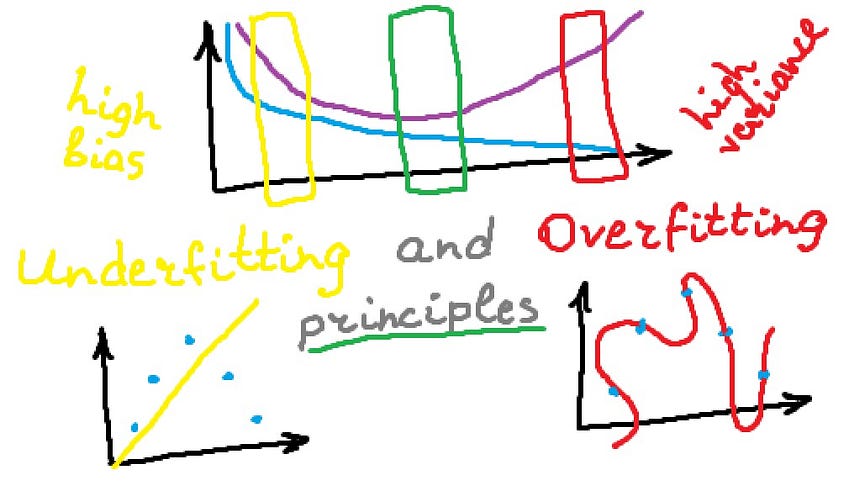 high
bias
high
variance
Underfitting and Overfitting
principles